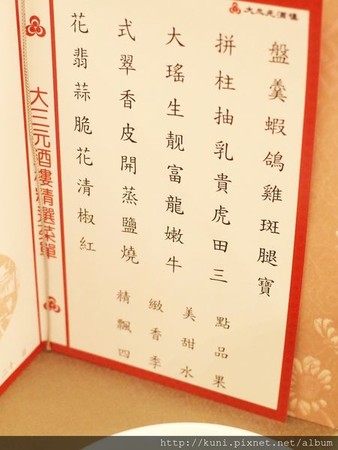 大三元酒樓
花式大拼盤
翡翠瑤柱羹
蒜香生抽蝦
脆皮靚乳鴿
花開富貴雞
清蒸龍虎斑
椒鹽嫩田腿
紅燒牛三寶
精緻美點
飄香甜品
四季水果
大三元酒樓精選菜單
http://kuni.pixnet.net/album